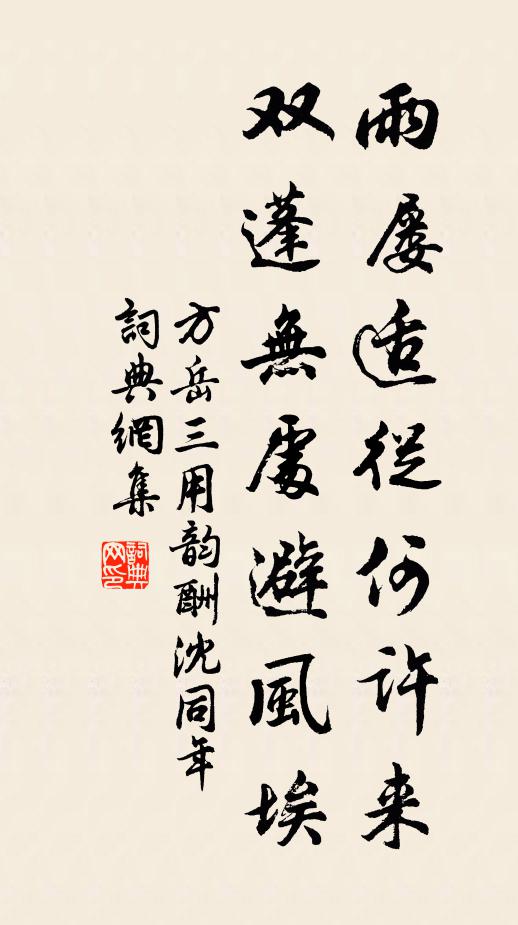 雨屡适從何許来
双蓬無處避風埃
方岳三用韵酬沈同年
詞典網集
詞典网印